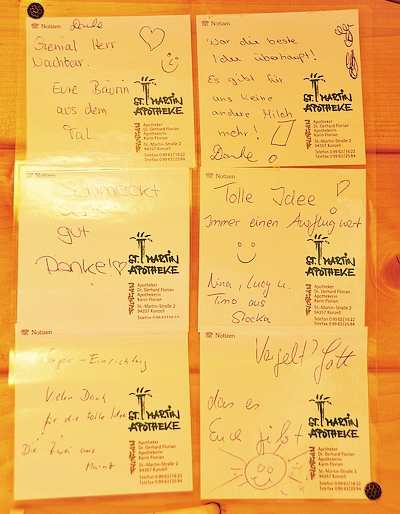 Notizen
Danke
Genial Herr
Nachbar.
Eure Bäurin
aus dem
Tal
ST. MARTIN
APOTHEKE
Apotheker
Dr. Gerhard Florian
Apothekerin
Karin Florian
St.-Martin-Straße 2
94357 Konzell
Telefon 0 99 63/16 22
Telefax 0 99 63/25 84
Notizen
War die beste
Idee überhaupt!
Es gibt für
uns keine
andere Milch
mehr!
Danke
ST. MARTIN
APOTHEKE
Apotheker
Dr. Gerhard Florian
Apothekerin
Karin Florian
St.-Martin-Straße 2
94357 Konzell
Telefon 0 99 63/16 22
Telefax 0 99 63/25 84
Notizen
Schmeckt
gut
Danke!
ST. MARTIN
APOTHEKE
Apotheker
Dr. Gerhard Florian
Apothekerin
Karin Florian
St.-Martin-Straße 2
94357 Konzell
Notizen
Tolle Idee!
Immer einen Ausflug wert
Nina, Lucy u.
Timo aus
ST. MARTIN
APOTHEKE
Apotheker
Dr. Gerhard Florian
Apothekerin
Karin Florian
St.-Martin-Straße 2
94357 Konzell
Telefon 0 99 63/16 22
Notizen
Super-Einrichtung
Vielen Dank
für die tolle Idee
Die Zwei aus
Mainz
ST. MARTIN
APOTHEKE
Apotheker
Dr. Gerhard Florian
Apothekerin
Karin Florian
St.-Martin-Straße 2
94357 Konzell
Telefon 0 99 63/16 22
Telefax 0 99 63/25 84
Notizen
Vergelt's Gott
das es
Euch gibt
ST. MARTIN
APOTHEKE
Apotheker
Dr. Gerhard Florian
Apothekerin
Karin Florian
St.-Martin-Straße 2
94357 Konzell
Telefon 0 99 63/16 22
Telefax 0 99 63/25 84